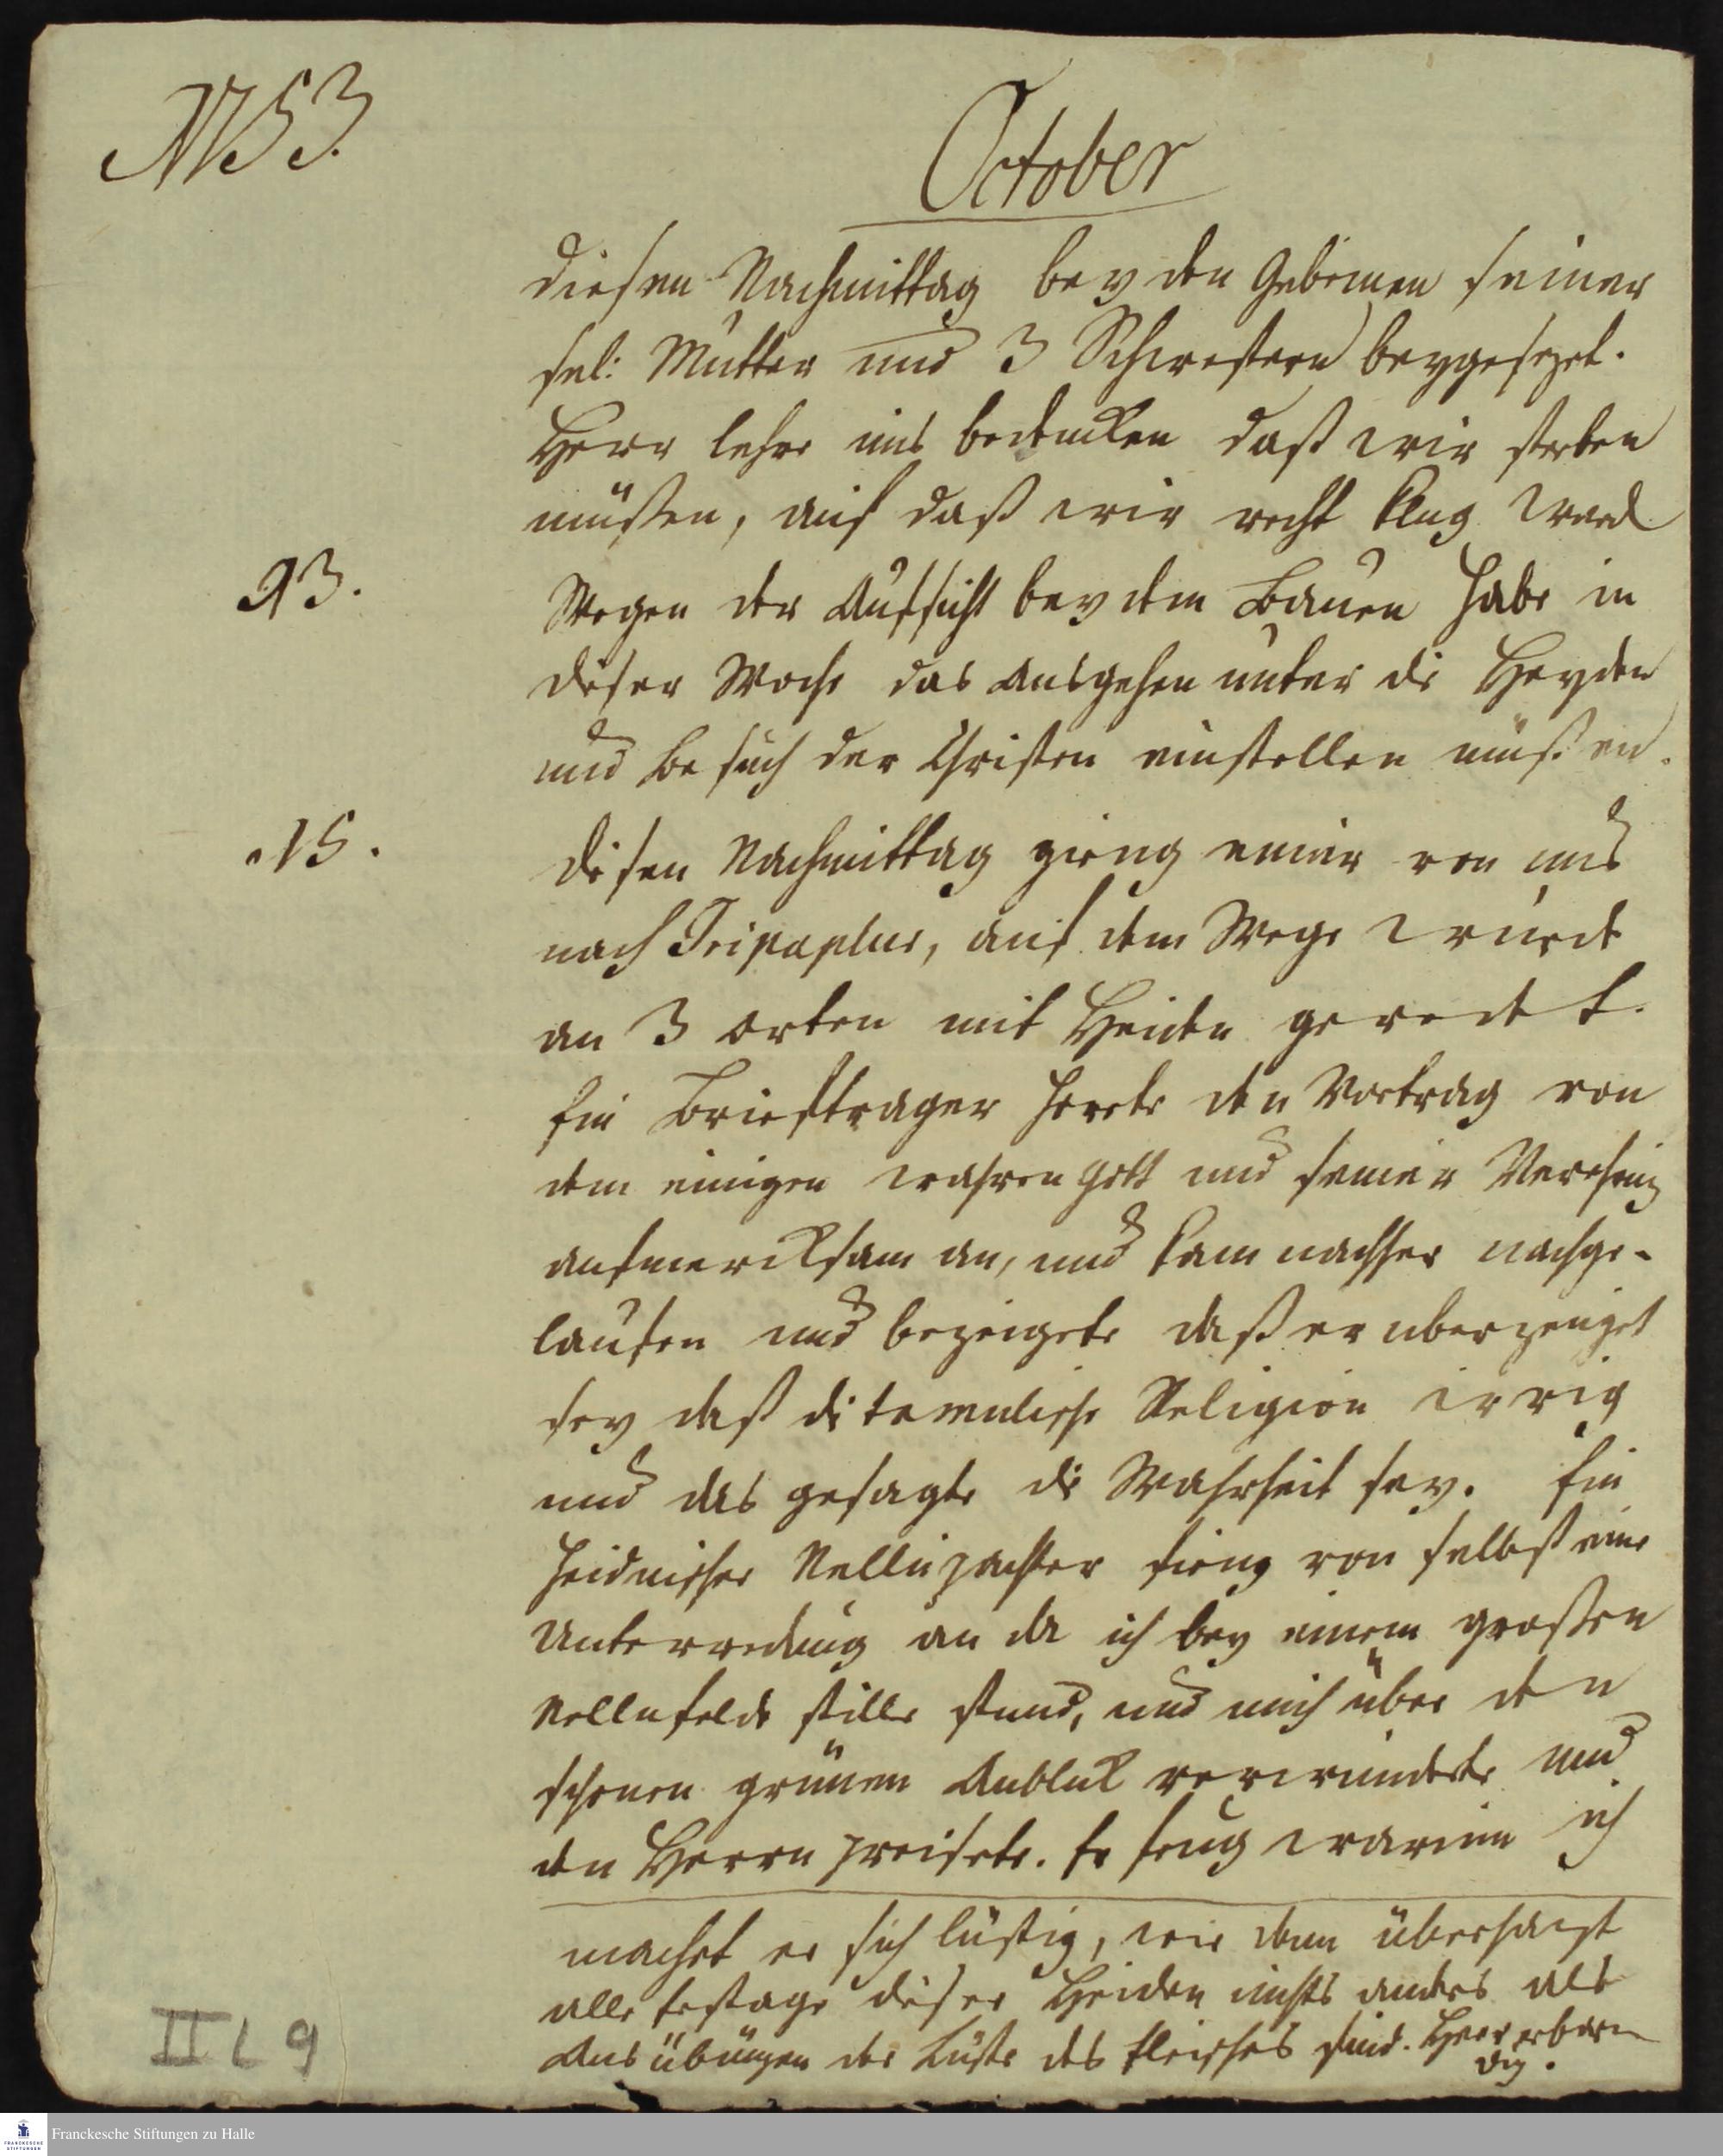 1753.
October
diesen Nachmittag bey den Gebeinen seiner
sel: Mutter und 3 Schwestern beygesezet.
Herr lehre uns bedencken daß wir sterben
müßen, auf daß wir recht klug werd
13.
Wegen der Aufsicht bey dem Bauen habe in
dieser Woche das Ausgehen unter die Heyden
und Besuch der Christen einstellen müßen.
15.
diesen Nachmittag gieng einer von uns
nach auf dem Wege wurde
an 3 Orten mit Heiden geredet.
Ein Briefträger horete den Vortrag von
dem einigen wahren Gott und seiner
aufmercksam an, und kam nachher nachge-
laufen und bezeigete daß er uberzeuget
sey daß die tamulische Religion irrig
und das gesagte die Wahrheit sey. Ein
heidnischer Nellupachter fieng von selbst eine
Unterredung an da ich bey einem großen
Nellufelde stille stund, und mich über den
schonen grünen Anblick verwunderte und
den Herrn preisete. Er frug warum ich
machet er sich lustig, wie denn überhaupt
alle Festage dieser Heiden nichts anders als
Ausübungen der Lüste des Fleisches sind. Herr erbarm
dich.
II L 9
Franckesche Stiftungen zu Halle